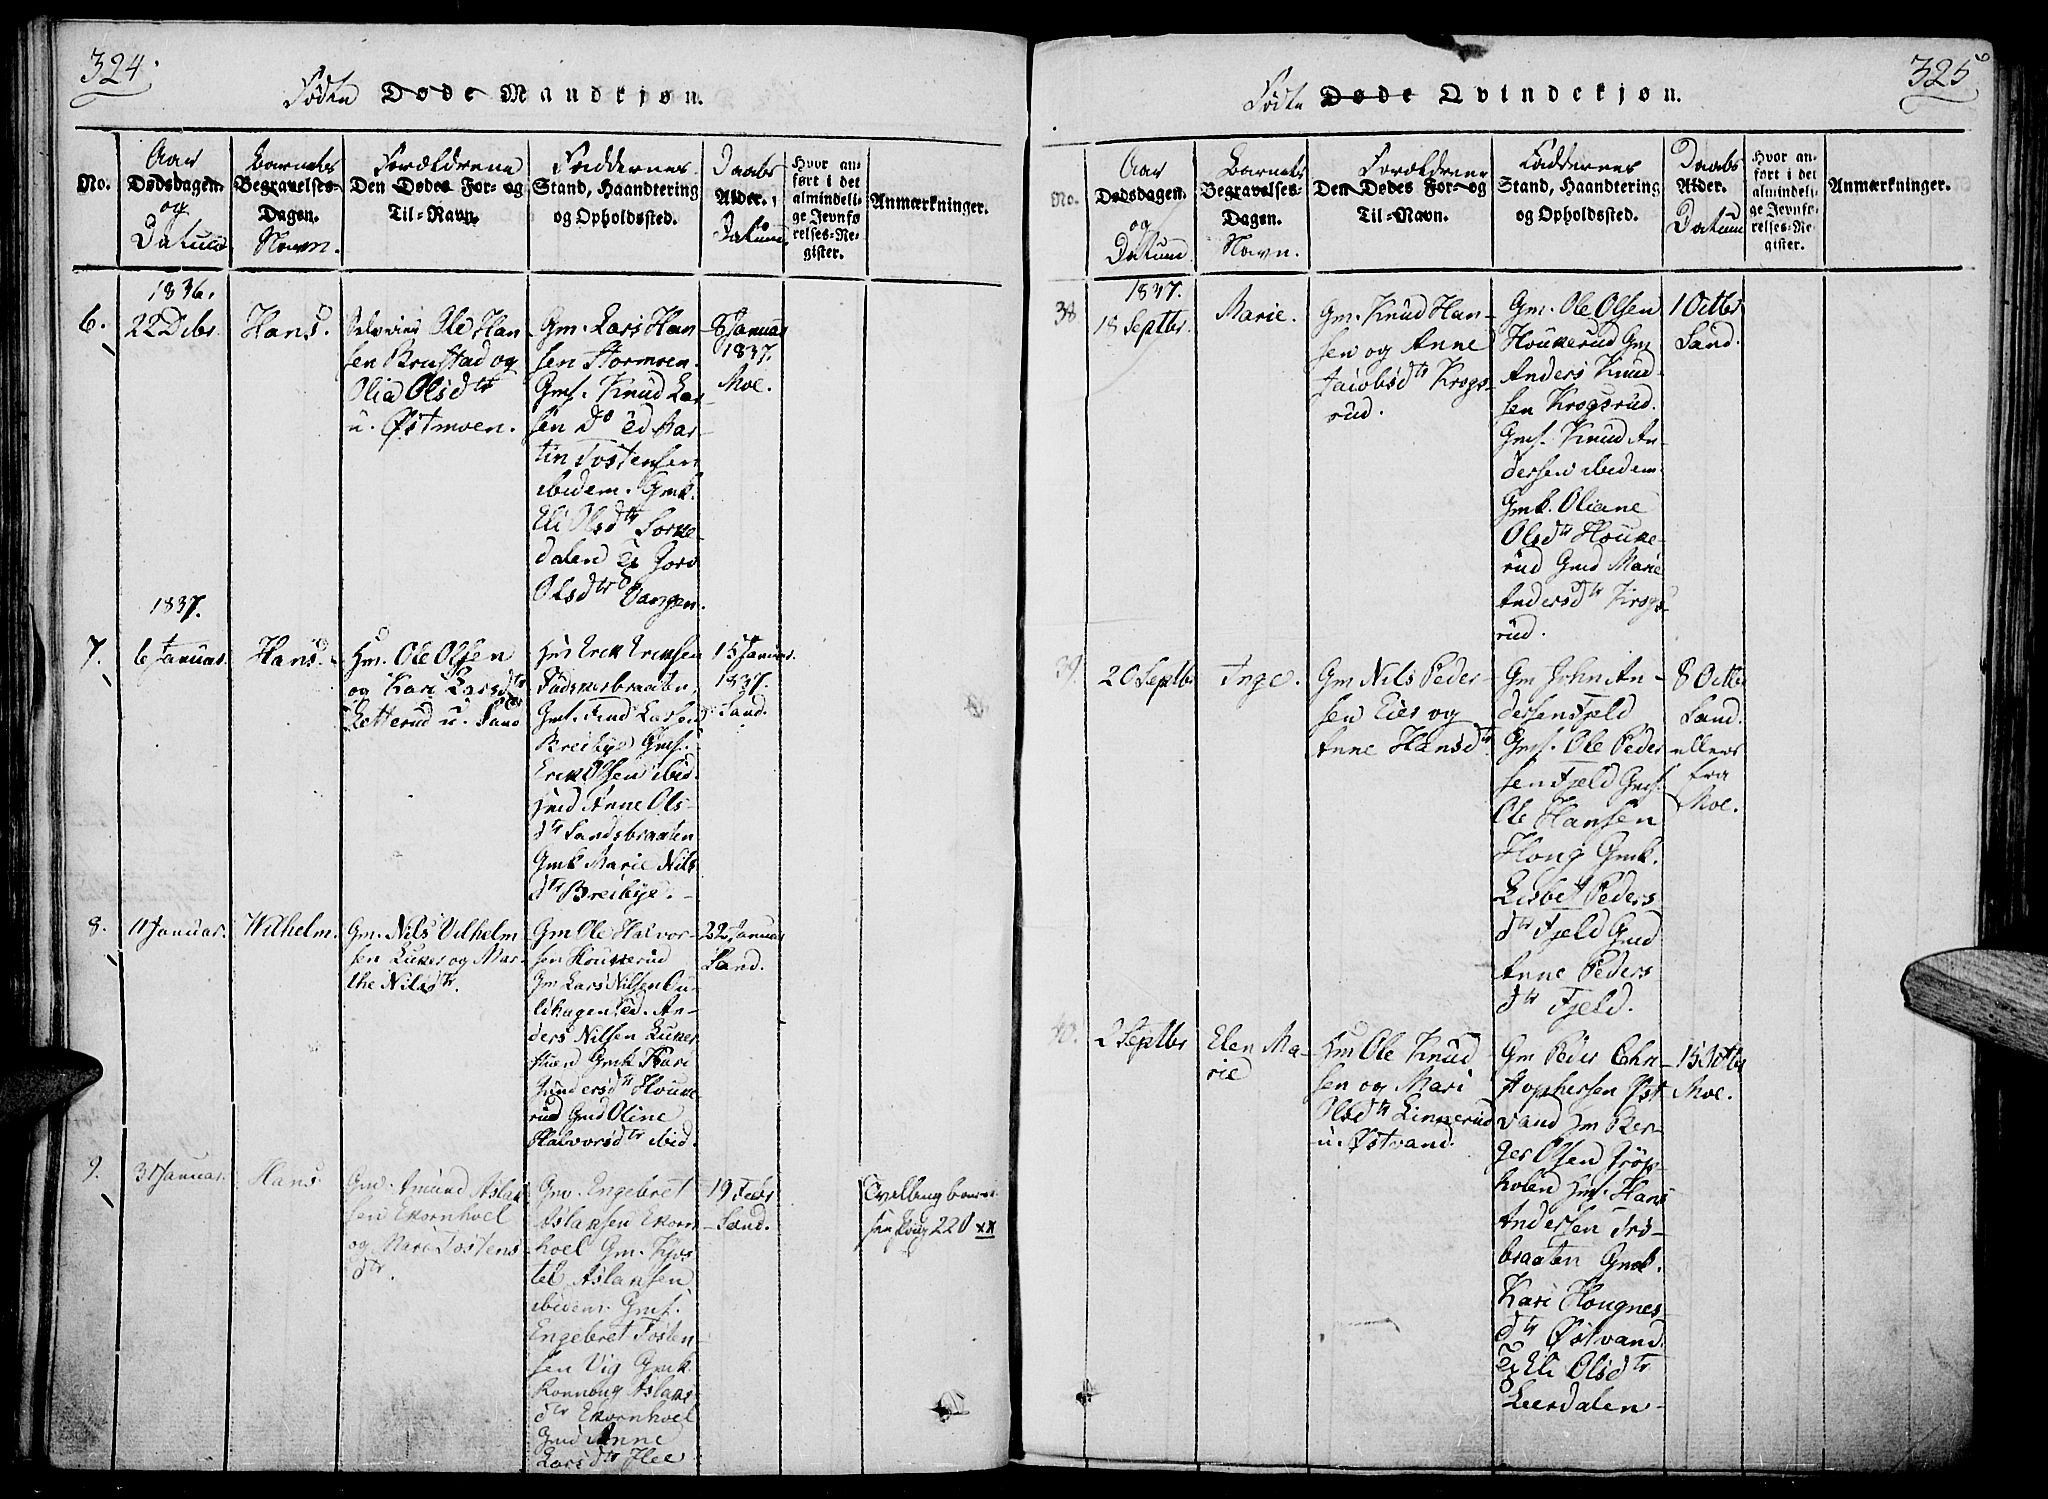 324.
Fødte Døde Mandkjøn.
No.
Aar
Dødsdagen.
og
Datum
Barnets
Begravelses-
Dagen.
Navn.
Forældrene
Den Dødes For- og
Til-Navn.
Faddernes
Stand, Haandtering
og Opholdssted.
Daabs
Alder.
Datum
Hvor an-
ført i det
almindeli-
ge Jevnfø-
relses-Re-
gister.
Anmærkninger.
6.
1836.
22 Debr.
Hans.
Ole Han-
sen Brustad og
Olia Olsdtr
u. Østmoen.
Gm. Lars Han-
sen Stormoen.
Gms. Knud Lar-
sen Do Ed Mar-
tin Tostensen
ibidem. Gmk.
Eli Olsdtr Sorke-
dalen
Olsdtr Vangen.
8 Januar
1837.
Moe.
7.
1837.
6 Januar.
Hans.
Hm. Ole Olsen
og Kari Larsdtr
Letterud u. Sand
Hm Erik Eriksen
Fadskerbraaten,
Gms. Lars
Breibye Gms.
Erik Olsen ibid.
Hmd Anne Ols-
dtr Sandsbraaten
Gmk Marie Nils
dtr Breibye.
15 Januar.
1837.
Sand.
8.
11 Januar.
Wilhelm.
Gm. Nils Vilhelm
sen Luker og Mar-
the Nilsdtr.
Gm Ole Halvor-
sen Houkerud
Gm Lars Nilsen Gu-
ldhagen Ed. An-
ders Nilsen Luker
stuen Gmk Kari
Gundersdtr Houke-
rud Gmd Oline
Halvorsdtr ibid.
22 Januar
Sand.
9.
31 Januar.
Hans
Gm. Amund Aslak
sen Ekornhoel
og Mari Tostens
dtr.
Gm. Engebret
Aslaksen Ekorn
hoel Gm. Kjos
tel Aslaksen
ibidem. Gms.
Engebret Tosten-
sen Vig Gmk.
Ronnoug Aslaks
dtr Ekornhoel
Gmd Anne
Larsdtr Hee
19 Febr
Sand.
Tvilling
220 xx
325
Fødte Døde Qvindekjøn.
No.
Aar
Dødsdagen.
og
Datum
Barnets
Begravelses-
Dagen.
Navn.
Forældrene
Den Dødes For- og
Til-Navn.
Faddernes
Stand, Haandtering
og Opholdssted.
Daabs
Alder.
Datum
Hvor an-
ført i det
almindeli-
ge Jevnfø-
relses-Re-
gister.
Anmærkninger.
38
1837.
18 Septbr.
Marie.
Gm. Knud Han-
sen og Anne
Jacobsdtr Krogs-
rud.
Gm. Ole Olsen
Houkerud Gm
Anders Knud-
sen Krogsrud.
Gms. Knud An-
dersen ibidem
Gmk. Oliane
Olsdtr Houke-
rud Gmd Marie
Andersdtr Krogs-
rud.
1 Octbr
Sand.
39.
20 Septbr
Inge.
Gm Nils Peder-
sen Eier og
Anne Hansdtr.
Gm John An-
dersen Fjeld
Gms. Ole Peder
sen Fjeld Gms.
Ole Hansen
Hong Gmk.
Lisbet Peders
dtr Fjeld Gmd
Anne Peders
dtr Fjeld.
8 Octbr
Sand.
ellers
fra
Moe.
40.
2 Septbr
Elen Ma-
rie
Hm Ole Knud
sen og Mari
Olsdtr Linnerud
u. Østvand.
Gm Peder Chri-
stophersen Øst
vand Hm Ber-
ger Olsen
Hms. Hans
Andersen
braaten Gmk.
Kari Hougnes-
dtr Østvand.
Eli Olsdtr
Leerdalen
15 Octbr
Moe.